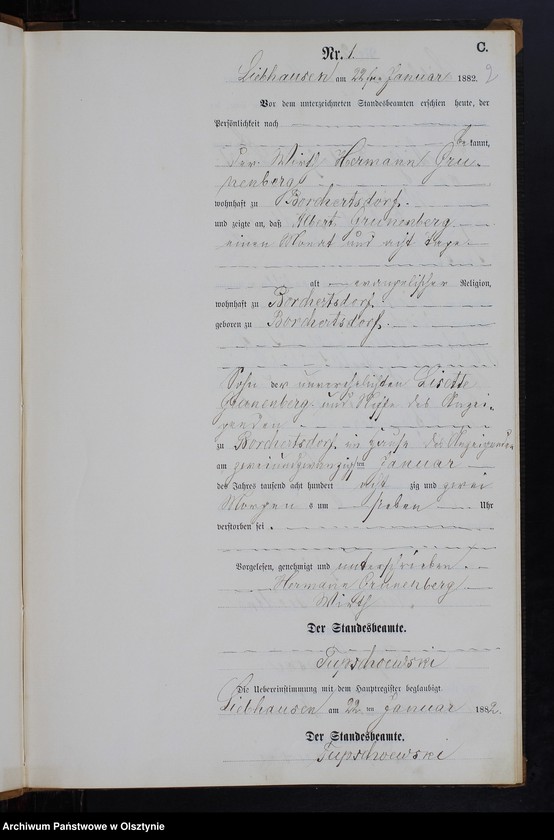 Nr. 1.
C.
2
Liebhausen am 22ten Januar 1882.
Vor dem unterzeichneten Standesbeamten erschien heute, der
Persönlichkeit nach
bekannt,
der Wirth Hermann Gru-
nenberg
wohnhaft zu Borchertsdorf.
und zeigte an, daß Albert Grunenberg
einen Monat und acht Tage
alt evangelischer Religion,
wohnhaft zu Borchertsdorf.
geboren zu Borchertsdorf.
Sohn der unverehelichten Lisette
Grunenberg und Neffe des Anzei-
genden
zu Borchertsdorf im Hause des Anzeigenden
am zweiundzwanzigsten Januar
des Jahres tausend acht hundert acht zig und zwei
Morgens um sieben Uhr
verstorben sei.
Vorgelesen, genehmigt und unterschrieben.
Hermann Grunenberg
Wirth
Der Standesbeamte.
Die Uebereinstimmung mit dem Hauptregister beglaubigt
Liebhausen am 22ten Januar 1882.
Der Standesbeamte.
Archiwum Państwowe w Olsztynie